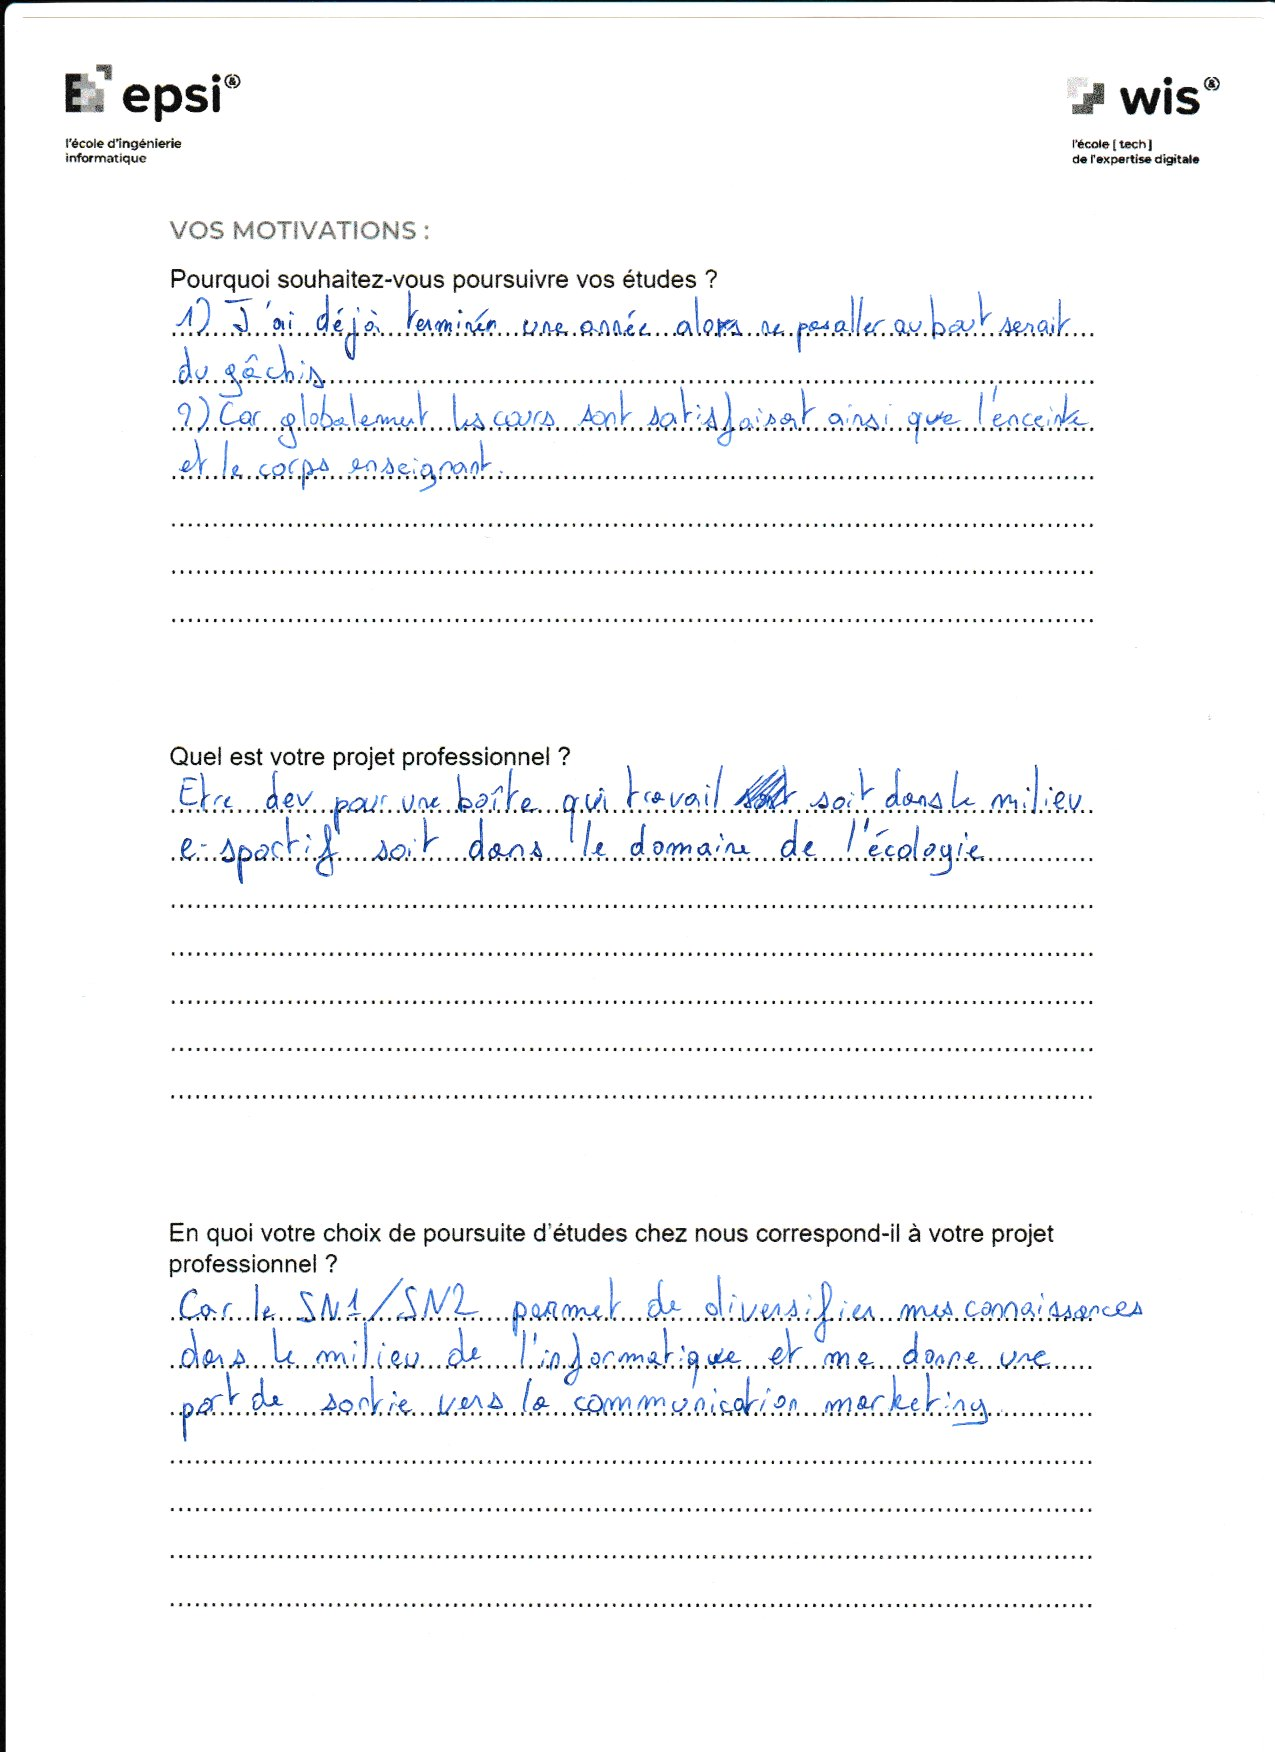 epsi&
wis&
l'école d'ingénierie
informatique
l'école [ tech ]
de l'expertise digitale
VOS MOTIVATIONS :
Pourquoi souhaitez-vous poursuivre vos études ?
1) J'ai déjà terminér une année alors ne pas aller au bout serait
du gâchis
2) Car globalement les cours sont satisfaisant ainsi que l'enceinte
et le corps enseignant.
Quel est votre projet professionnel ?
Etre dev pour une boîte qui travail soit dans le milieu
e-sportif soit dans le domaine de l'écologie
En quoi votre choix de poursuite d'études chez nous correspond-il à votre projet
professionnel ?
Car le SN1/SN2 permet de diversifier mes connaissances
dans le milieu de l'informatique et me donne une
port de sortie vers la communication marketing